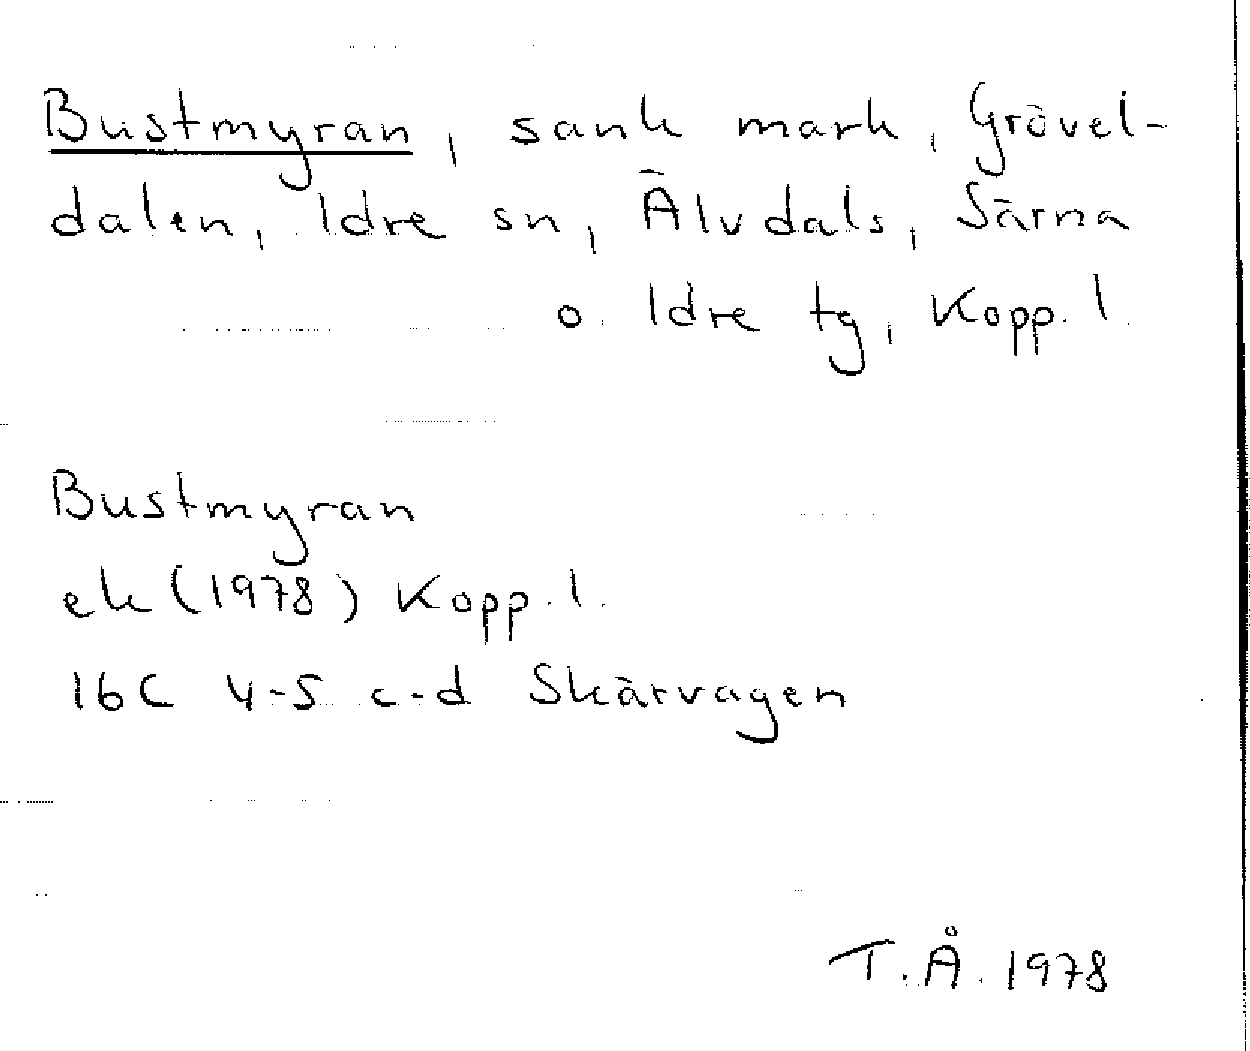 Bustmyran, sank mark, Grövel-
dalen, Idre sn, Älvdals, Särna
o. Idre tg, Kopp. l.
Bustmyran
ek (1978) Kopp. l.
16C 4-5 c-d Skärvagen
T.Å. 1978